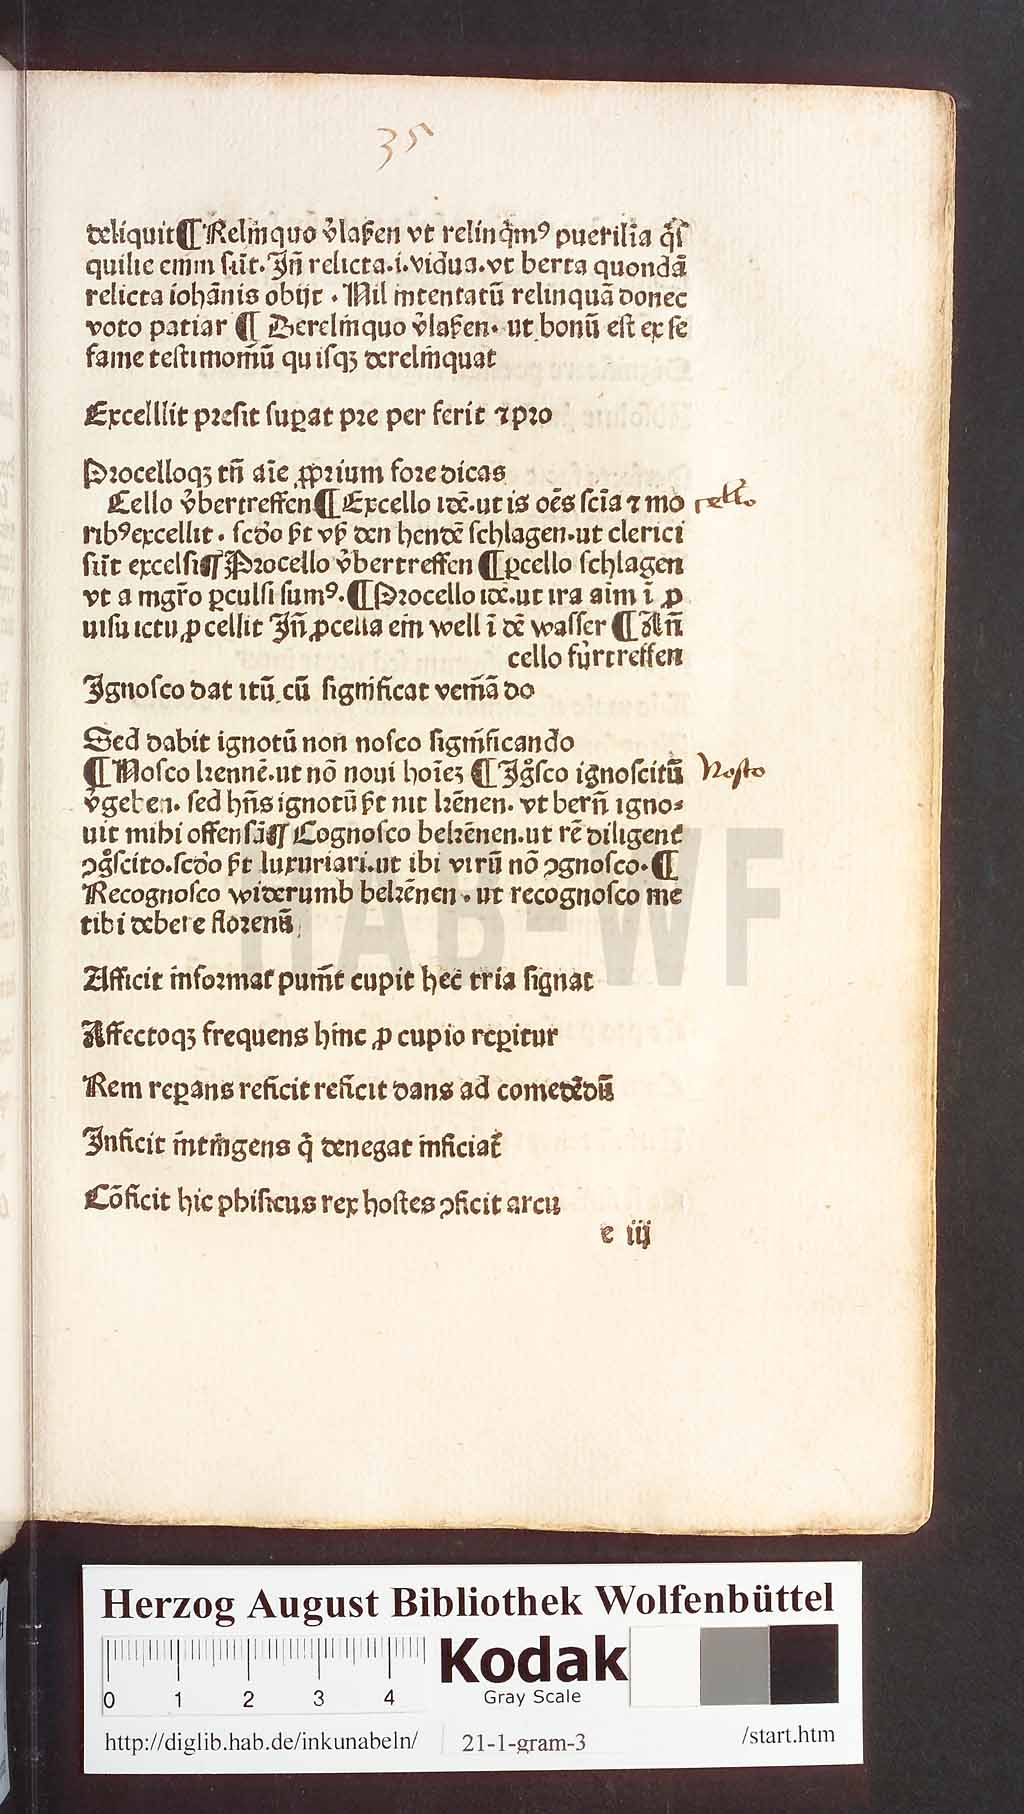 35
deliquit¶ Relīnquo v̉laẞen vt relinq̄mꝰ puerilia q̄ſ
quilie enim ſūt. Jn̄ relicta .i. vidua. vt berta quondā
relicta iohānis obijt . Nil intentatū relinquā donec
voto patiar ¶ Derelīnquo v̉laẞen. ut bonū eſt ex ſe
fame teſtimoniū quiſqꝫ derelīnquat
Excelllit preſit ſuꝑat pre per ferit ⁊ pro
Procelloqꝫ tn̄ aīe ꝓprium fore dicas
Cello v̉bertreffen¶ Excello idē. ut is oēs ſcīa ⁊ mo
cello
ribꝰ excellit . ſcd̄o ẞt vẞ den hendē ſchlagen. ut clerici
ſūt excelſi¶ Procello v̉bertreffen ¶ ꝑcello ſchlagen
vt a mgr̄o ꝑculſi ſumꝰ. ¶ Procello idē. ut ira aīm ī ꝓ
uiſu ictu ꝓcellit Jn̄ ꝓcella ein̄ well ī dē waſſer ¶ An̄
cello fu̇rtreffen
Jgnoſco dat itū, cū ſignificat veniā do
Sed dabit ignotū non noſco ſignificando
¶ Noſco kennē. ut nō noui hoīeꝫ ¶ Jgſco ignoſcitū
Nosco
v̉geben. ſed hn̄s ignotū ẞt nit kēnen. vt bern̄ igno⸗
uit mihi offenſā¶ Cognoſco bekēnen. ut rē diligent̄
ꝯgſcito. ſcd̄o ẞt luxuriari. ut ibi virū nō ꝯgnoſco. ¶
Recognoſco widerumb bekēnen . ut recognoſco me
tibi debere florenū
Afficit informat punit cupit hec tria ſignat
Affectoqꝫ frequens hinc ꝓ cupio reꝑitur
Rem reꝑans reficit reficit dans ad comedēdū
Jnficit intingens q̄ denegat inficiat̄
Cōficit hic phiſicus rex hoſtes ꝯficit arcu
e iij
HAB-WF
Herzog August Bibliothek Wolfenbüttel
0 1 2 3 4
Kodak
Gray Scale
http://diglib.hab.de/inkunabeln/ 21-1-gram-3 /start.htm